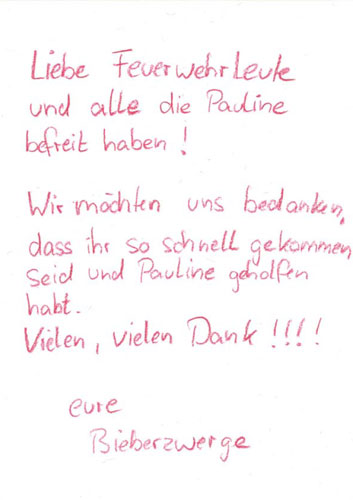 Liebe Feuerwehrleute
und alle die Pauline
befreit haben!
Wir möchten uns bedanken,
dass ihr so schnell gekommen
seid und Pauline geholfen
habt.
Vielen, vielen Dank !!!!
eure
Bieberzwerge